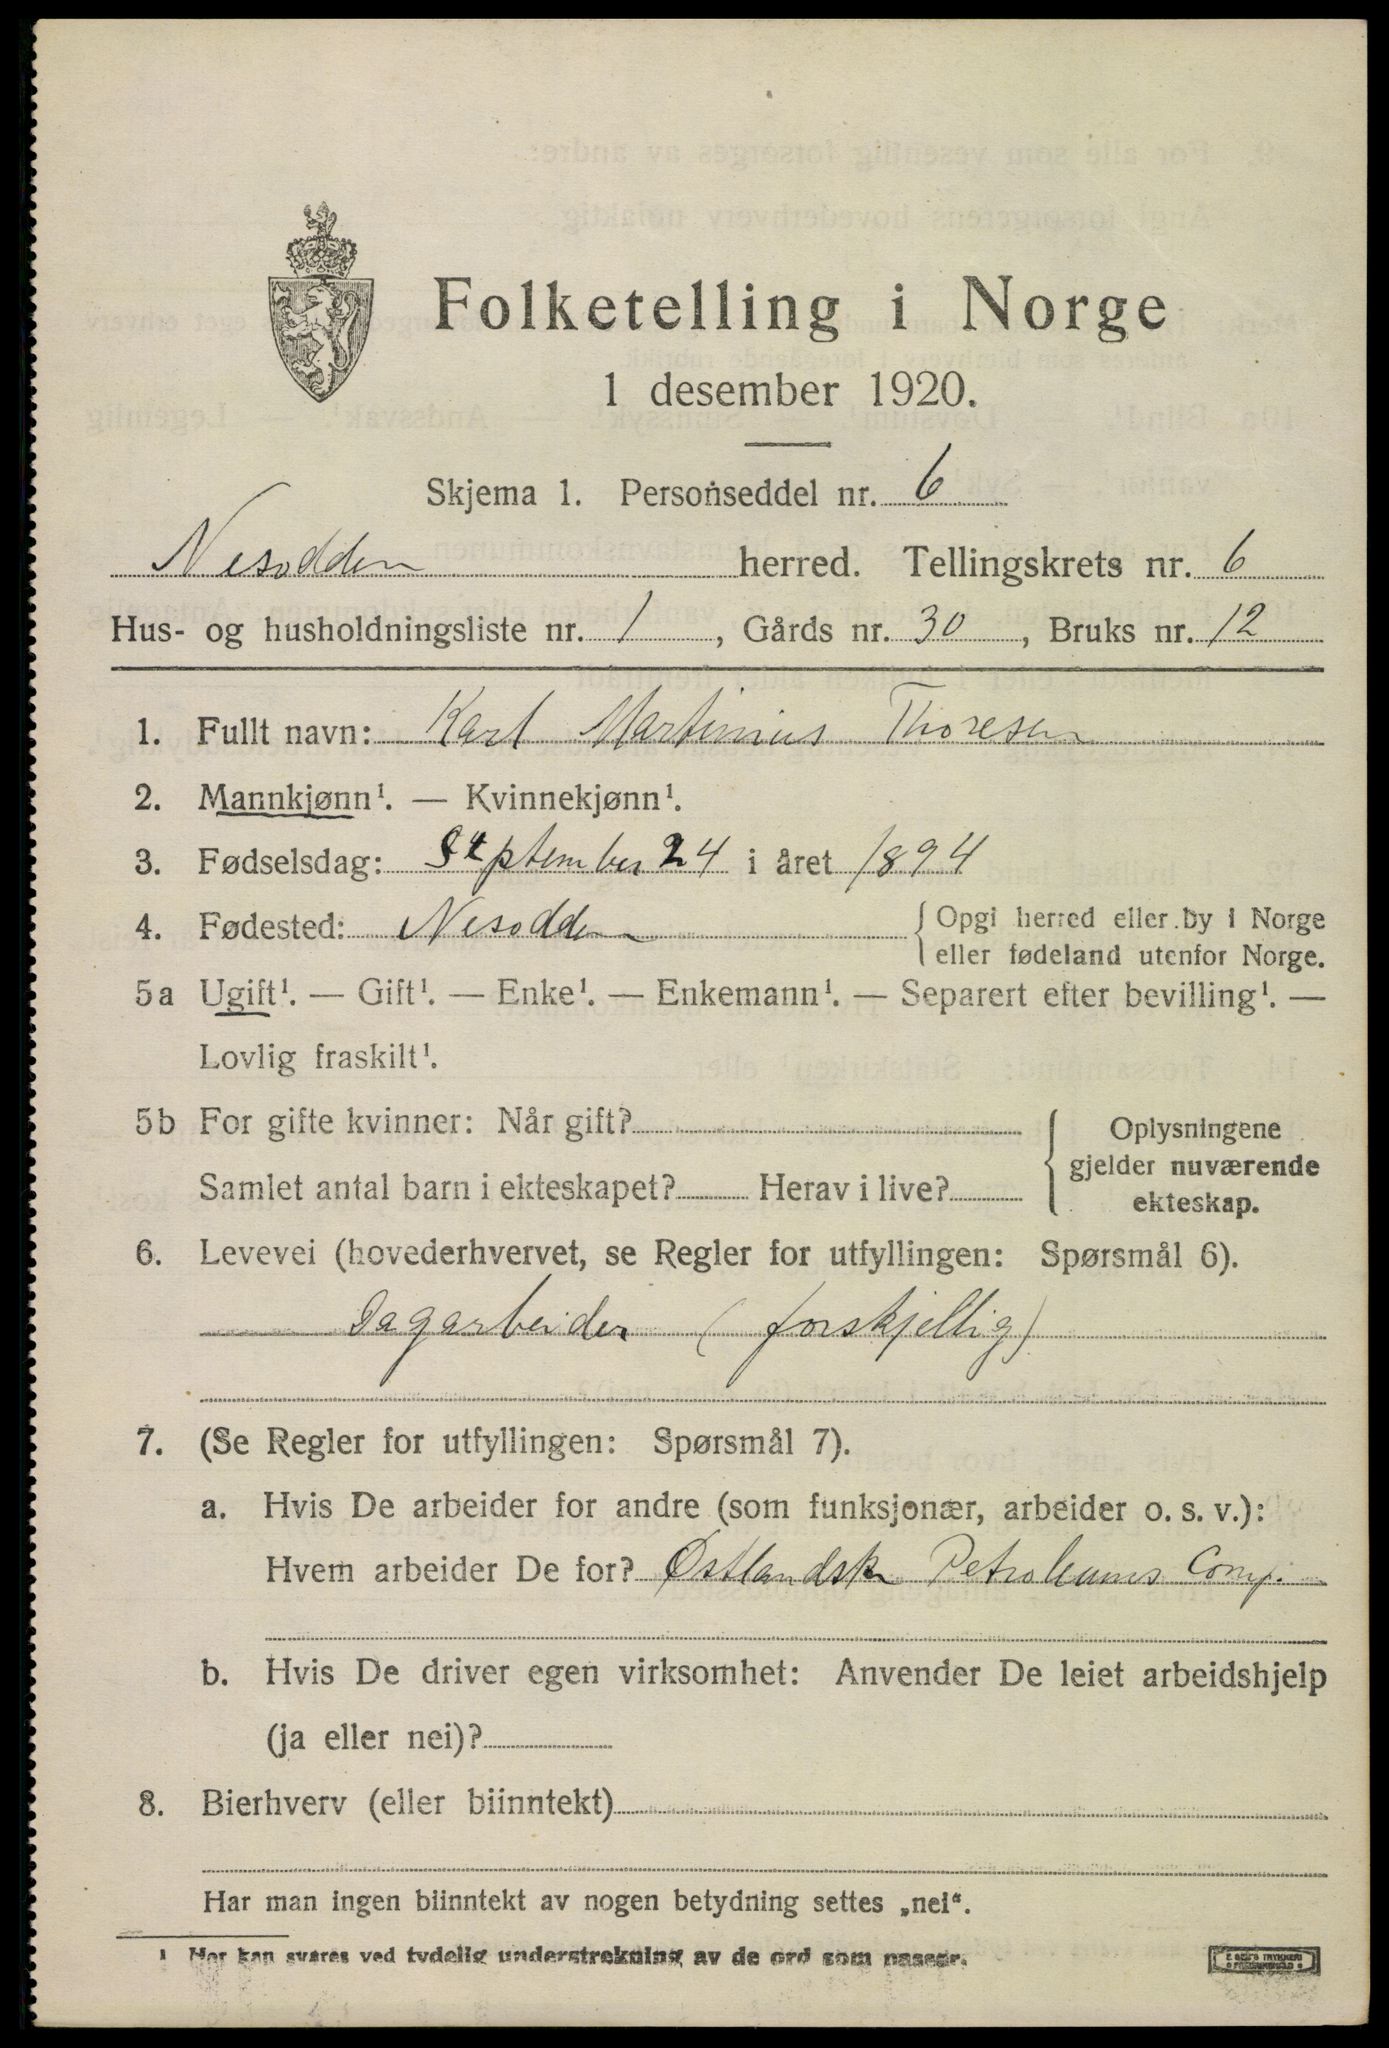 Folketelling i Norge
1 desember 1920.
Skjema 1. Personseddel nr. 6
Nesodden herred. Tellingskrets nr. 6
Hus- og husholdningsliste nr. 1, Gårds nr. 30, Bruks nr. 12
1. Fullt navn: Karl Martinius Thoresen
2. Mannkjønn¹. — Kvinnekjønn¹.
3. Fødselsdag: September 24 i året 1894
4. Fødested: Nesodden { Opgi herred eller by i Norge
eller fødeland utenfor Norge.
5a Ugift¹. — Gift¹. — Enke¹. — Enkemann¹. — Separert efter bevilling¹. —
Lovlig fraskilt¹.
5b For gifte kvinner: Når gift? { Oplysningene
gjelder nuværende
Samlet antal barn i ekteskapet? Herav i live? ekteskap.
6. Levevei (hovederhvervet, se Regler for utfyllingen: Spørsmål 6).
Dagarbeider (forskjellig)
7. (Se Regler for utfyllingen: Spørsmål 7).
a. Hvis De arbeider for andre (som funksjonær, arbeider o. s. v.):
Hvem arbeider De for? Østlandske Petroleums Comp.
b. Hvis De driver egen virksomhet: Anvender De leiet arbeidshjelp
(ja eller nei)?
8. Bierhverv (eller biinntekt)
Har man ingen biinntekt av nogen betydning settes „nei“.
1 Her kan svares ved tydelig understrekning av de ord som passer.